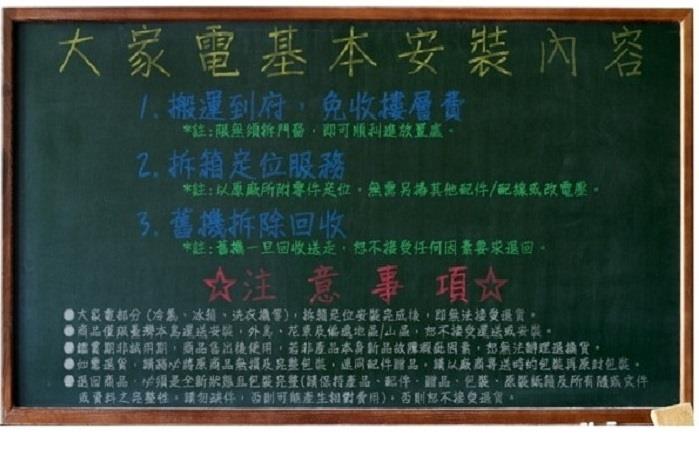 大家電基本安裝內容
1. 搬運到府，免收樓層費
*註:限無須拆門窗，即可順利進放置處。
2. 拆箱定位服務
*註:以原廠所附零件定位。無需另購其他配件/配線或改電壓。
3. 舊機拆除回收
*註:舊機一旦回收送走，恕不接受任何因素要求退回。
☆注意事項☆
●大家電部分(冷氣、冰箱、洗衣機等)，拆箱定位安裝完成後，即無法接受退貨。
●商品僅限臺灣本島運送安裝，外島、花東及偏遠地區/山區，恕不接受運送或安裝。
●鑑賞期非試用期，商品售出後使用，若非產品本身新品故障瑕疵因素，恕無法辦理退換貨。
●如需退貨，請務必將原商品無損及完整包裝，連同配件贈品，請以廠商寄送時的包裝再原封包裝。
●退回商品，必須是全新狀態且包裝完整(請保持產品、配件、贈品、包裝、原裝紙箱及所有隨或文件
或資料之完整性。請勿缺件，否則可能產生相對費用)，否則恕不接受退貨。